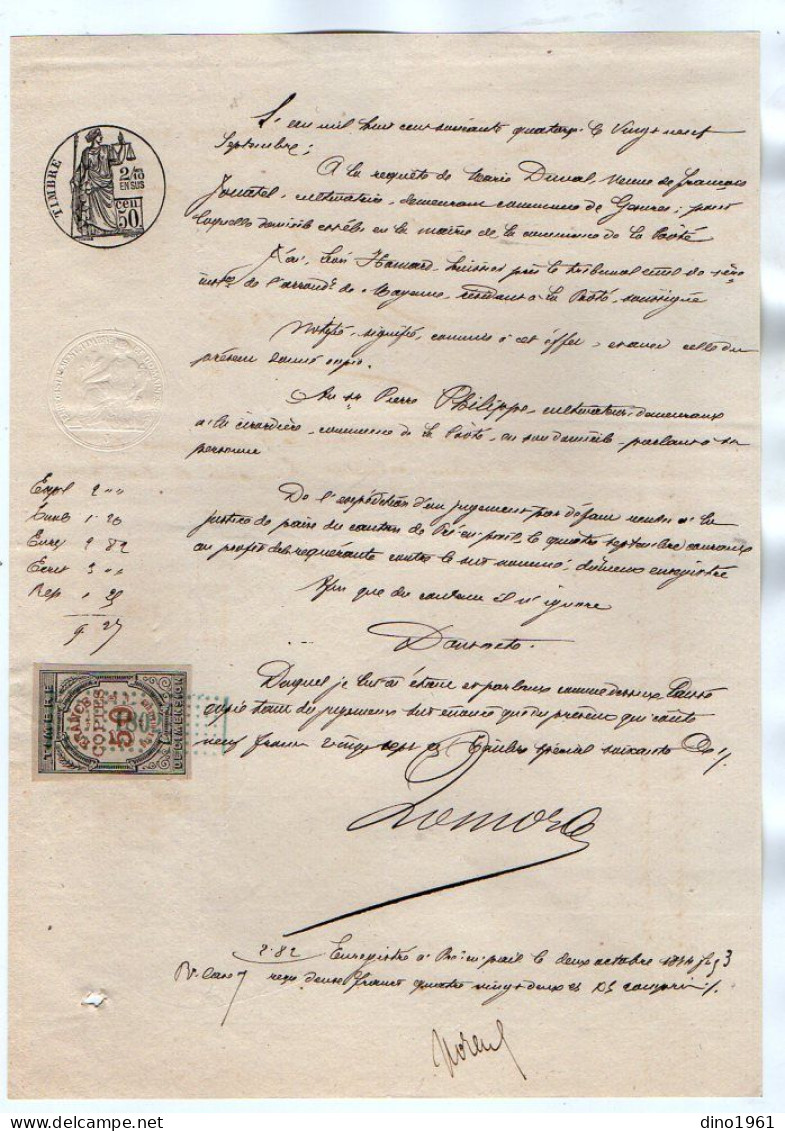 L'an mil huit cent soixante quatorze le Vingt neuf
Septembre;
A la requête de Marie Duval, Veuve de François
cultivatrice, demeurant commune de ; pour
laquelle domicile est élu en la mairie de la commune de la Pôôté
J'ai, Léon Hamard, huissier près le tribunal civil de 1ère
inst.ce de l'arrond.t de Mayenne, résidant à la Pôôté, soussigné
Notifié, signifié, comme à cet effet, et avec celle du
présent laissé copie.
Au sr Pierre Philippe, cultivateur, demeurant
à la , commune de la Pôôté, en son domicile, parlant à sa
personne
De l'expédition d'un jugement par défaut rendu à la
justice de paix du canton de Pré-en-pail, le quatre septembre courant
au profit de la requérante contre le sus nommé, dûment enregistré
Afin que du contenu il n'ignore
Dont acte.
Duquel je lui ai étant et parlant comme dessus laissé
copie tant du jugement sus énoncé que du présent qui coûte
neuf francs vingt sept et Timbre spécial soixante c./.
TIMBRE
2/10
EN SUS
50 cen
Expl 2 "
1.20
Enreg 2 82
3 "
Rep " 25
9 27
TIMBRE
COPIES
50
DE DIMENSION
2.82 Enregistré à Pré-en-pail le deux octobre 1874
reçu deux francs quatre vingt deux c. compris ./.
dino1961